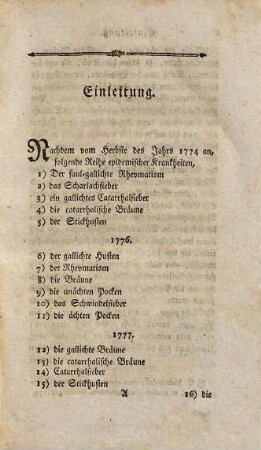 Einleitung.
Nachdem vom Herbste des Jahrs 1774 an,
folgende Reihe epidemischer Krankheiten,
1) Der faul-gallichte Rhevmatism
2) das Scharlachfieber
3) ein gallichtes Catarrhalfieber
4) die catarrhalische Bräune
5) der Stickhusten
1776.
6) der gallichte Husten
7) der Rhevmatism
8) die Bräune
9) die unächten Pocken
10) das Schwindelfieber
11) die ächten Pocken
1777.
12) die gallichte Bräune
13) die catarrhalische Bräune
14) Catarrhalfieber
15) der Stickhusten
A 16) die